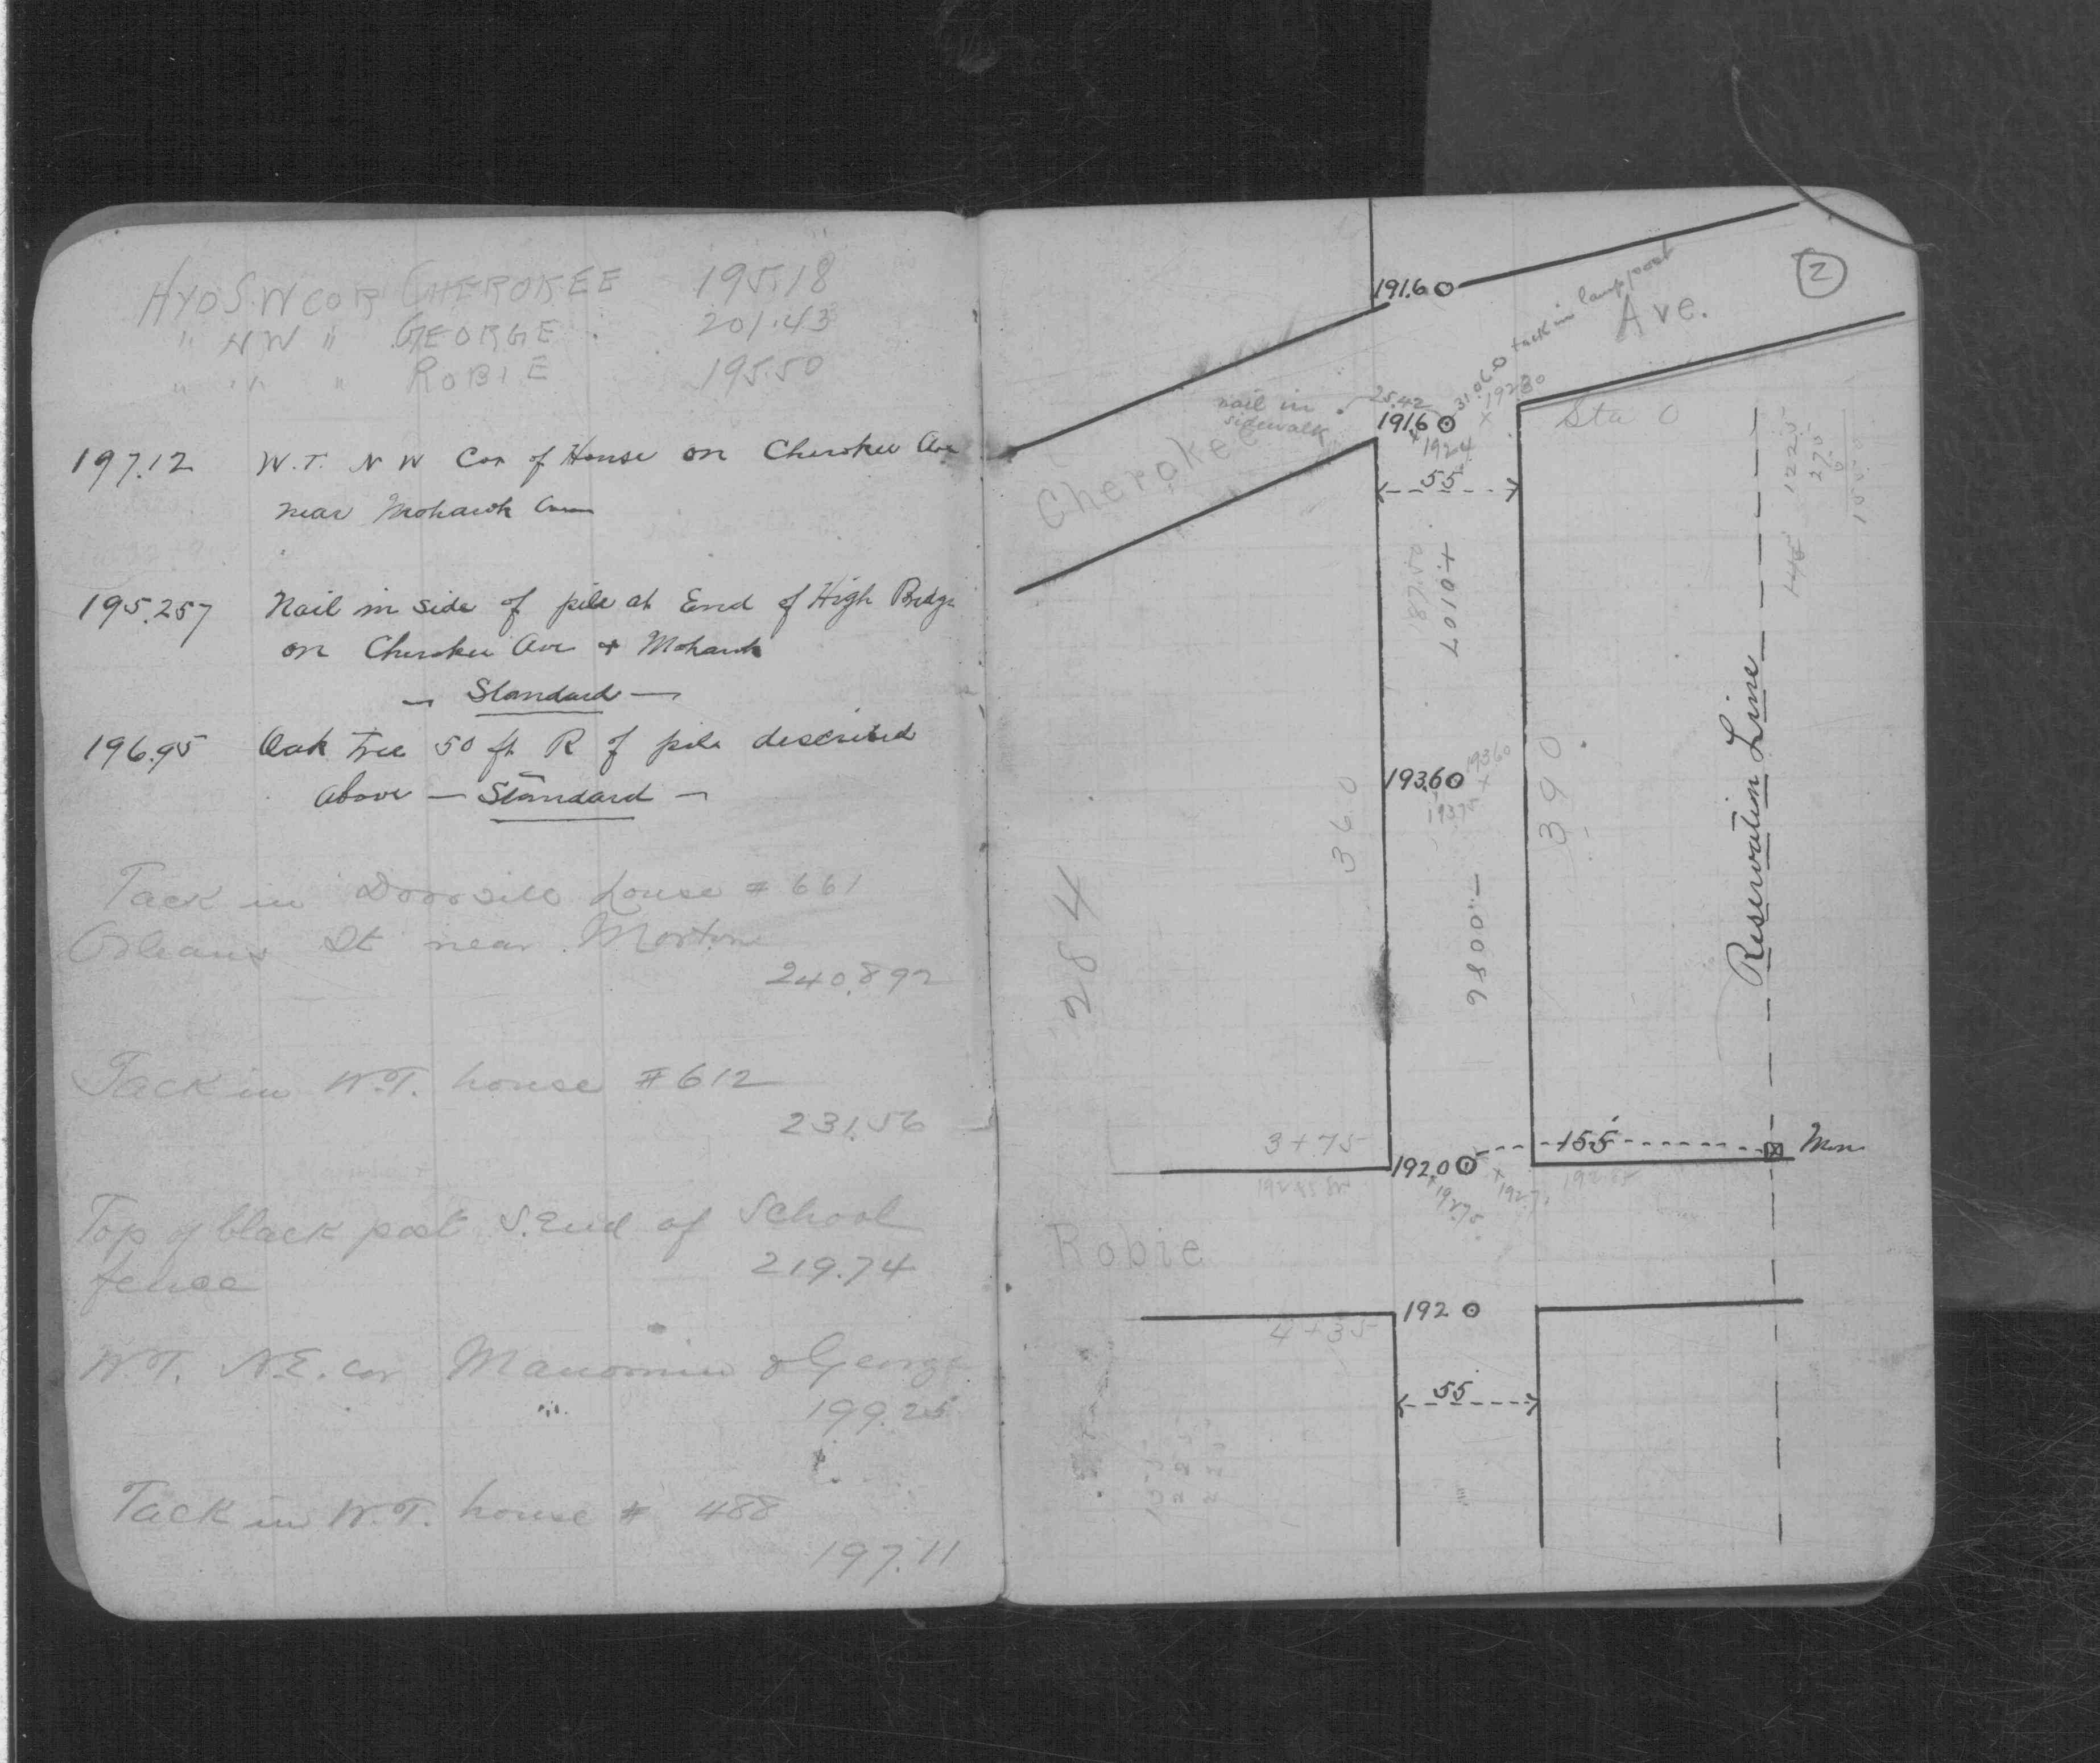 HYD S.W COR CHEROKEE 195.18
" NW " GEORGE 201.43
" " " ROBIE 195.50
197.12 W.T. N W Cor of House on Cherokee Ave
near Mohawk Ave
195.257 Nail in side of pile at End of High Bridge
on Cherokee Ave + Mohawk
— Standard —
196.95 Oak Tree 50 ft R of pile described
above — Standard —
Tack in Doorsill house # 661
Orleans St near Morton
240.892
Tack in W.T. house # 612
231.56
Top of black post S. End of School
fence 219.74
W.T. N.E. cor Manomin & George
199.25
Tack in W.T. house # 488
197.11
2
191.6
tack in lamp post
Ave.
31.06
192.80
25.42
nail in
sidewalk
191.6
192.4
Sta 0
Cherokee
55
122.5
187.50
Reservation Line
193.6
193.60
193.75
360
390
284
9800"
3+75
192.0
155
Mon
192.75
Robie
192
4+35
55